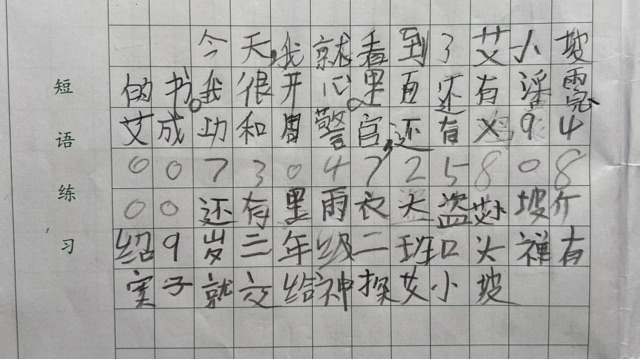 短语练习
今天,我就看到了艾小坡
的书。我很开心。里面还有潘霓
艾成功和周警官,还有X94
007304725808
00还有黑雨衣大盗艾小坡介
绍9岁三年级二班口头禅有
案子就交给神探艾小坡